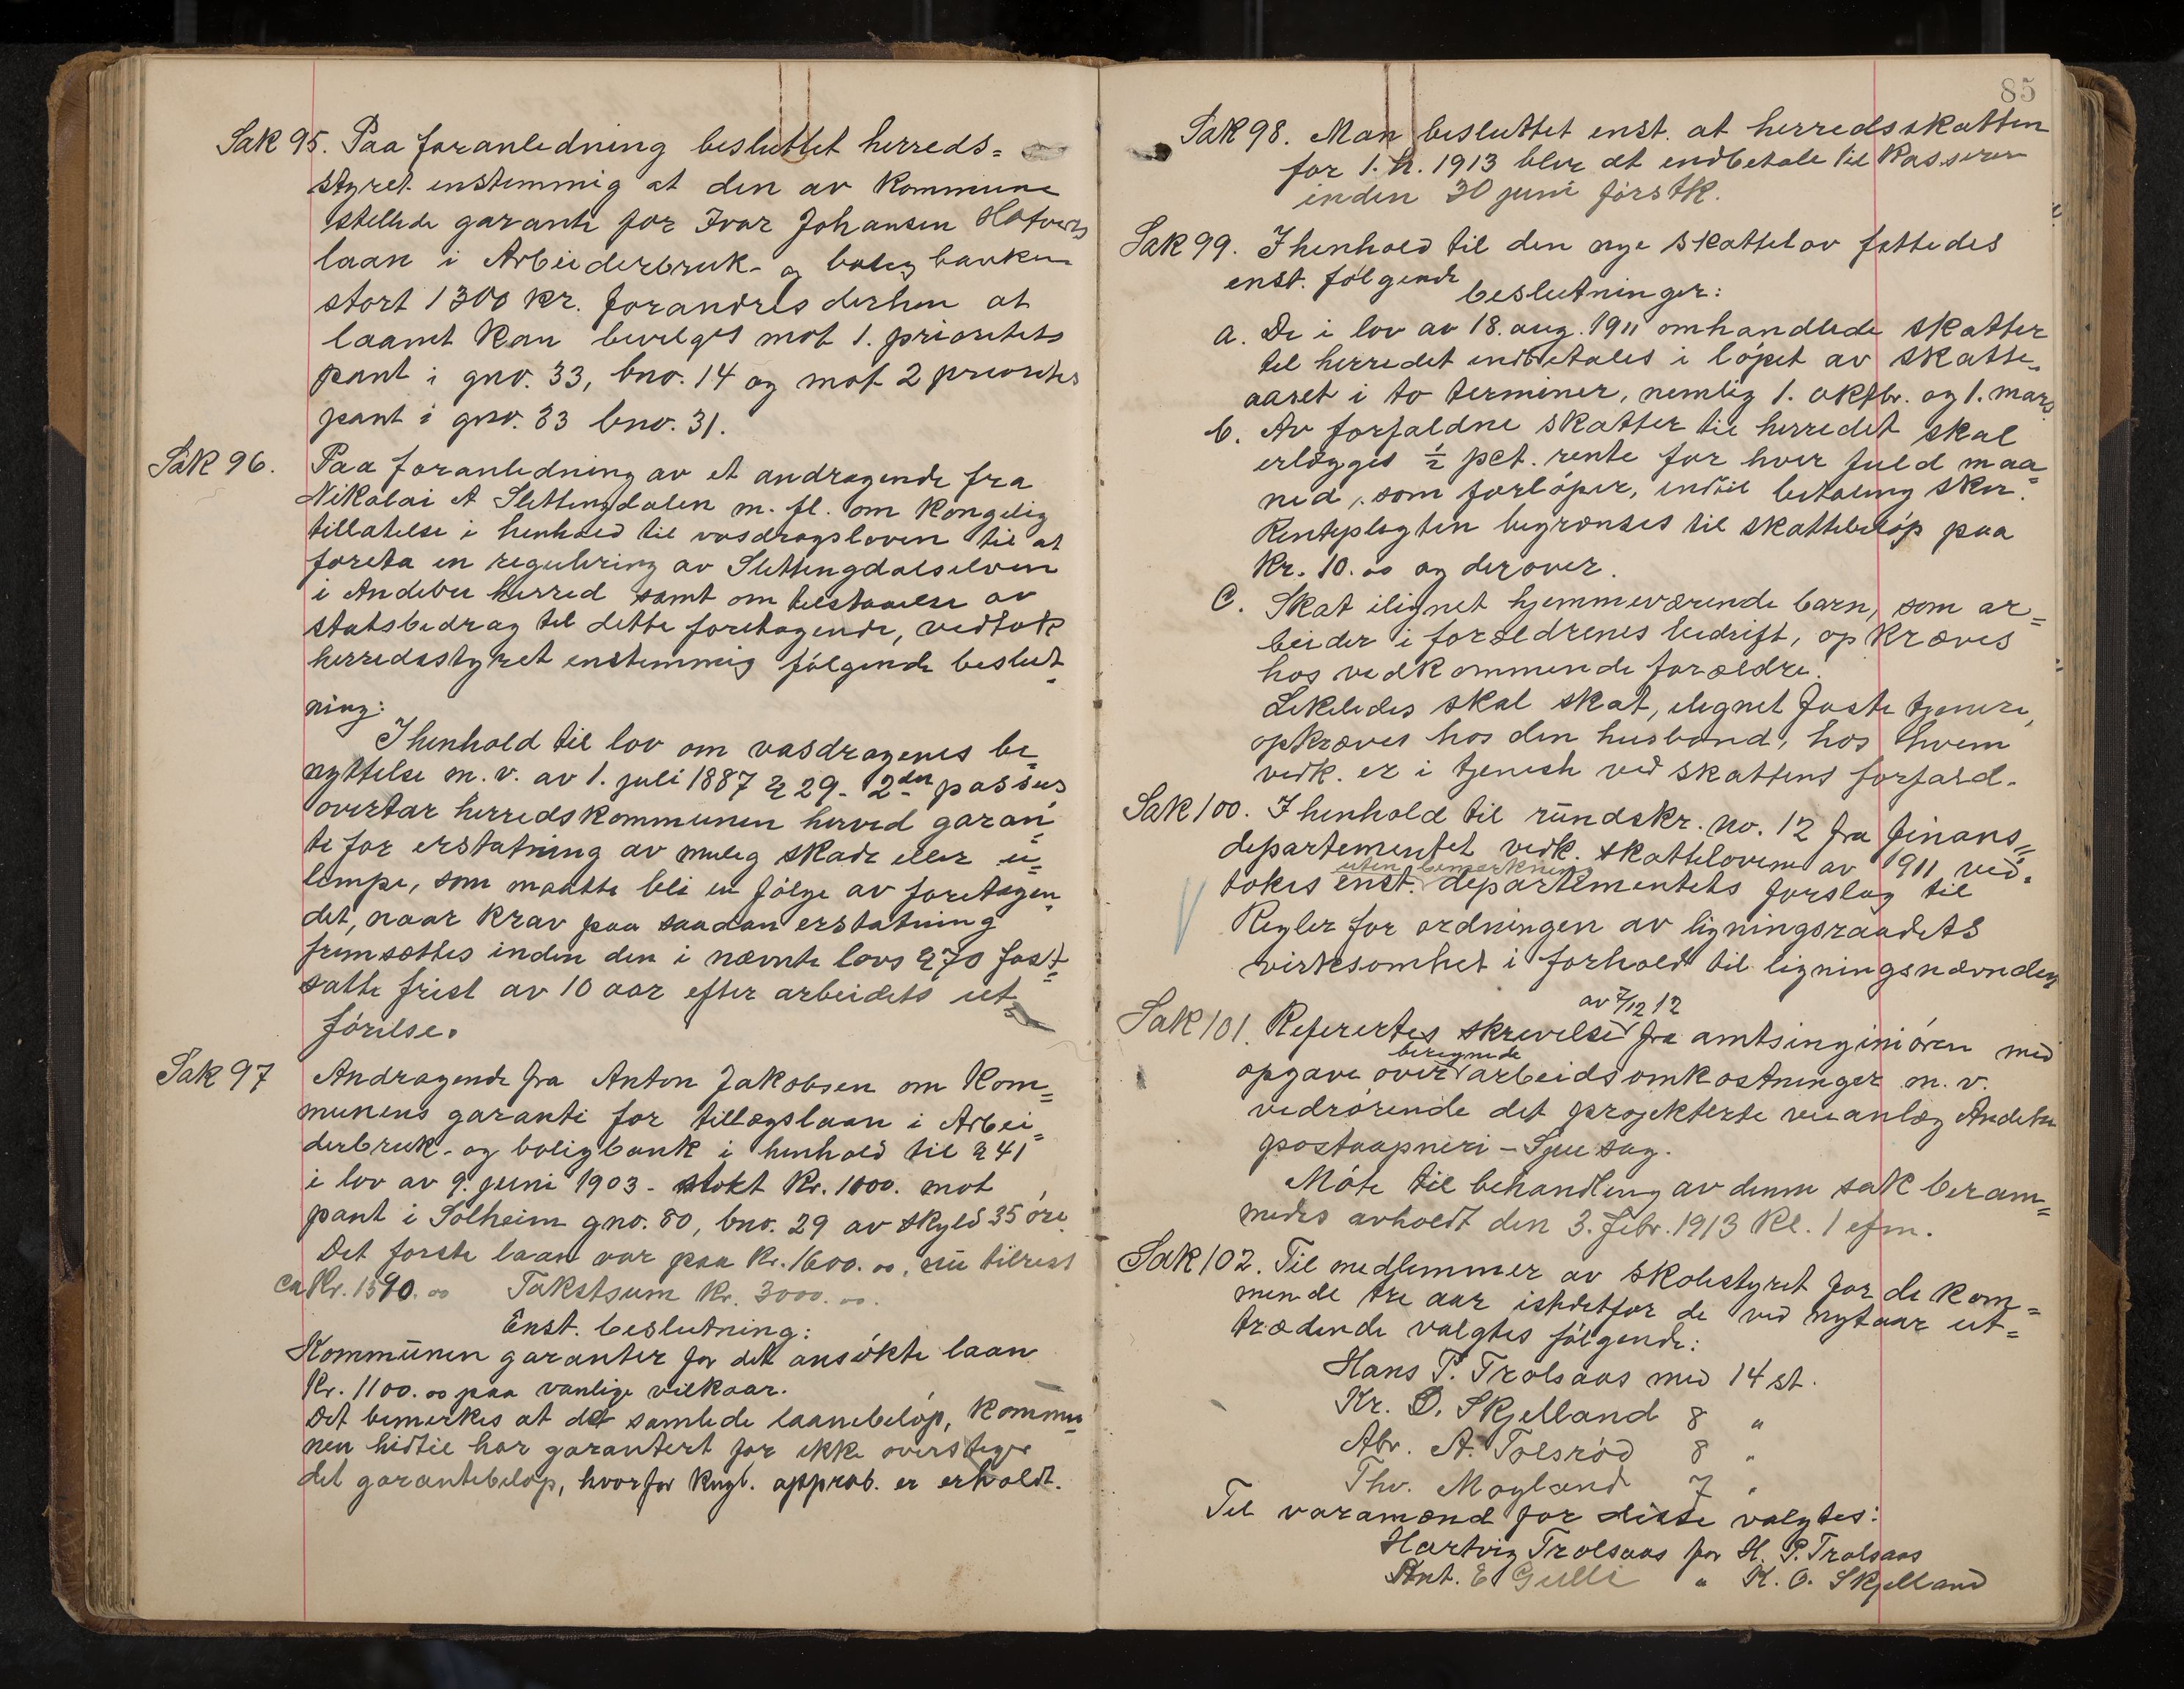 Sak 95. Paa foranledning besluttet herreds=
styret enstemmig at den av Kommune
stellede garanti for Ivar Johansen
laan i Arbeiderbruk- og bolig banken
stort 1300 kr. forandres derhen at
laanet kan bevilges mot 1. prioritets
pant i gno. 33, bno. 14 og mot 2 prioritets
pant i gno. 33 bno. 31.
Sak 96. Paa foranledning av et andragende fra
Nikolai A Slettingdalen m. fl. om Kongelig
tillatelse i henhold til vasdragsloven til at
foreta en regulering av Slettingdalselven
i Andebu herred samt om tilstaaelse av
statsbedrag til dette foretagende, vedtok
herredsstyret enstemmig følgende beslut-
ning:
I henhold til lov om vasdragenes be-
nyttelse m. v. av 1. juli 1887 § 29 - 2den passus
overtar herredskommunen herved garan=
ti for erstatning av mulig skade eller u=
lempe, som maatte bli en følge av foretagen-
det, naar krav paa saadan erstatning
fremsættes inden den i nævnte lovs § 70 fast=
satte frist av 10 aar efter arbeidets ut=
førelse.
Sak 97 Andragende fra Anton Jakobsen om Kom=
munens garanti for tillægslaan i Arbei=
derbruk- og boligbank i henhold til § 41
i lov av 9. juni 1903 - stort Kr. 1100. mot
pant i Solheim gno. 80, bno. 29 av skyld 35 øre.
Det første laan var paa Kr. 1600.00, nu tilrest
ca Kr. 1590.00 Takstsum Kr. 3000.00.
Enst. beslutning:
Kommunen garanter for det ansøkte laan
Kr. 1100.00 paa vanlige vilkaar.
Det bemerkes at det samlede laanebeløp, Kommu=
nen hidtil har garantert for ikke overstiger
det garantibeløp, hvorfor kngl. approb. er erholdt.
85
Sak 98. Man besluttet enst. at herredsskatten
for 1. h. 1913 blir at indbetale til Kasserer
inden 30 juni førstk.
Sak 99. I henhold til den nye Skattelov fattedes
enst. følgende
beslutninger:
a. De i lov av 18. aug. 1911 omhandlede skatter
til herredet indbetales i løpet av skatte=
aaret i to terminer, nemlig 1. oktbr. og 1. mars
b. Av forfaldne skatter til herredet skal
erlægges ½ pct. rente for hver fuld maa=
ned, som forløper, indtil betaling sker.
Renteplagten begrænses til skattebeløp paa
Kr. 10.00 og derover.
C. Skat ilignet hjemmeværende barn, som ar=
beider i forældrenes bedrift, opkræves
hos vedkommende forældre.
Likeledes skal skat, ilignet faste tjenere,
opkræves hos den husbond, hos hvem
vedk. er i tjeneste ved skattens forfald.
Sak 100. I henhold til rundskr. no. 12 fra finans=
departementet vedk. skattelovene av 1911 ved=
uten bemerkning
tokes enst. departementets forslag til
Regler for ordningen av ligningsraadets
virksomhet i forhold til ligningsnævnden
av 7/12 12
Sak 101. Refertes skrivelse fra amtsingeniøren med
beregnede
opgave over arbeidsomkostninger m. v.
vedrørende det projekterte veianlæg Andebu
postaapneri - Sjue sag.
Møte til behandling av denne sak beram=
medes avholdt den 3. febr. 1913 Kl. 1 efm.
Sak 102. Til medlemmer av skolestyret for de kom=
mende tre aar istedetfor de ved nytaar ut=
trædende valgtes følgende:
Hans P. Trolsaas med 14 st.
Kr. O. Skjelland 8 "
Abr. A. Tolsrød 8 "
Thv. Moyland 7 "
Til varamænd for disse valgtes:
Hartvig Trolsaas for H. P. Trolsaas
Ant. E Gulli " K. O. Skjelland